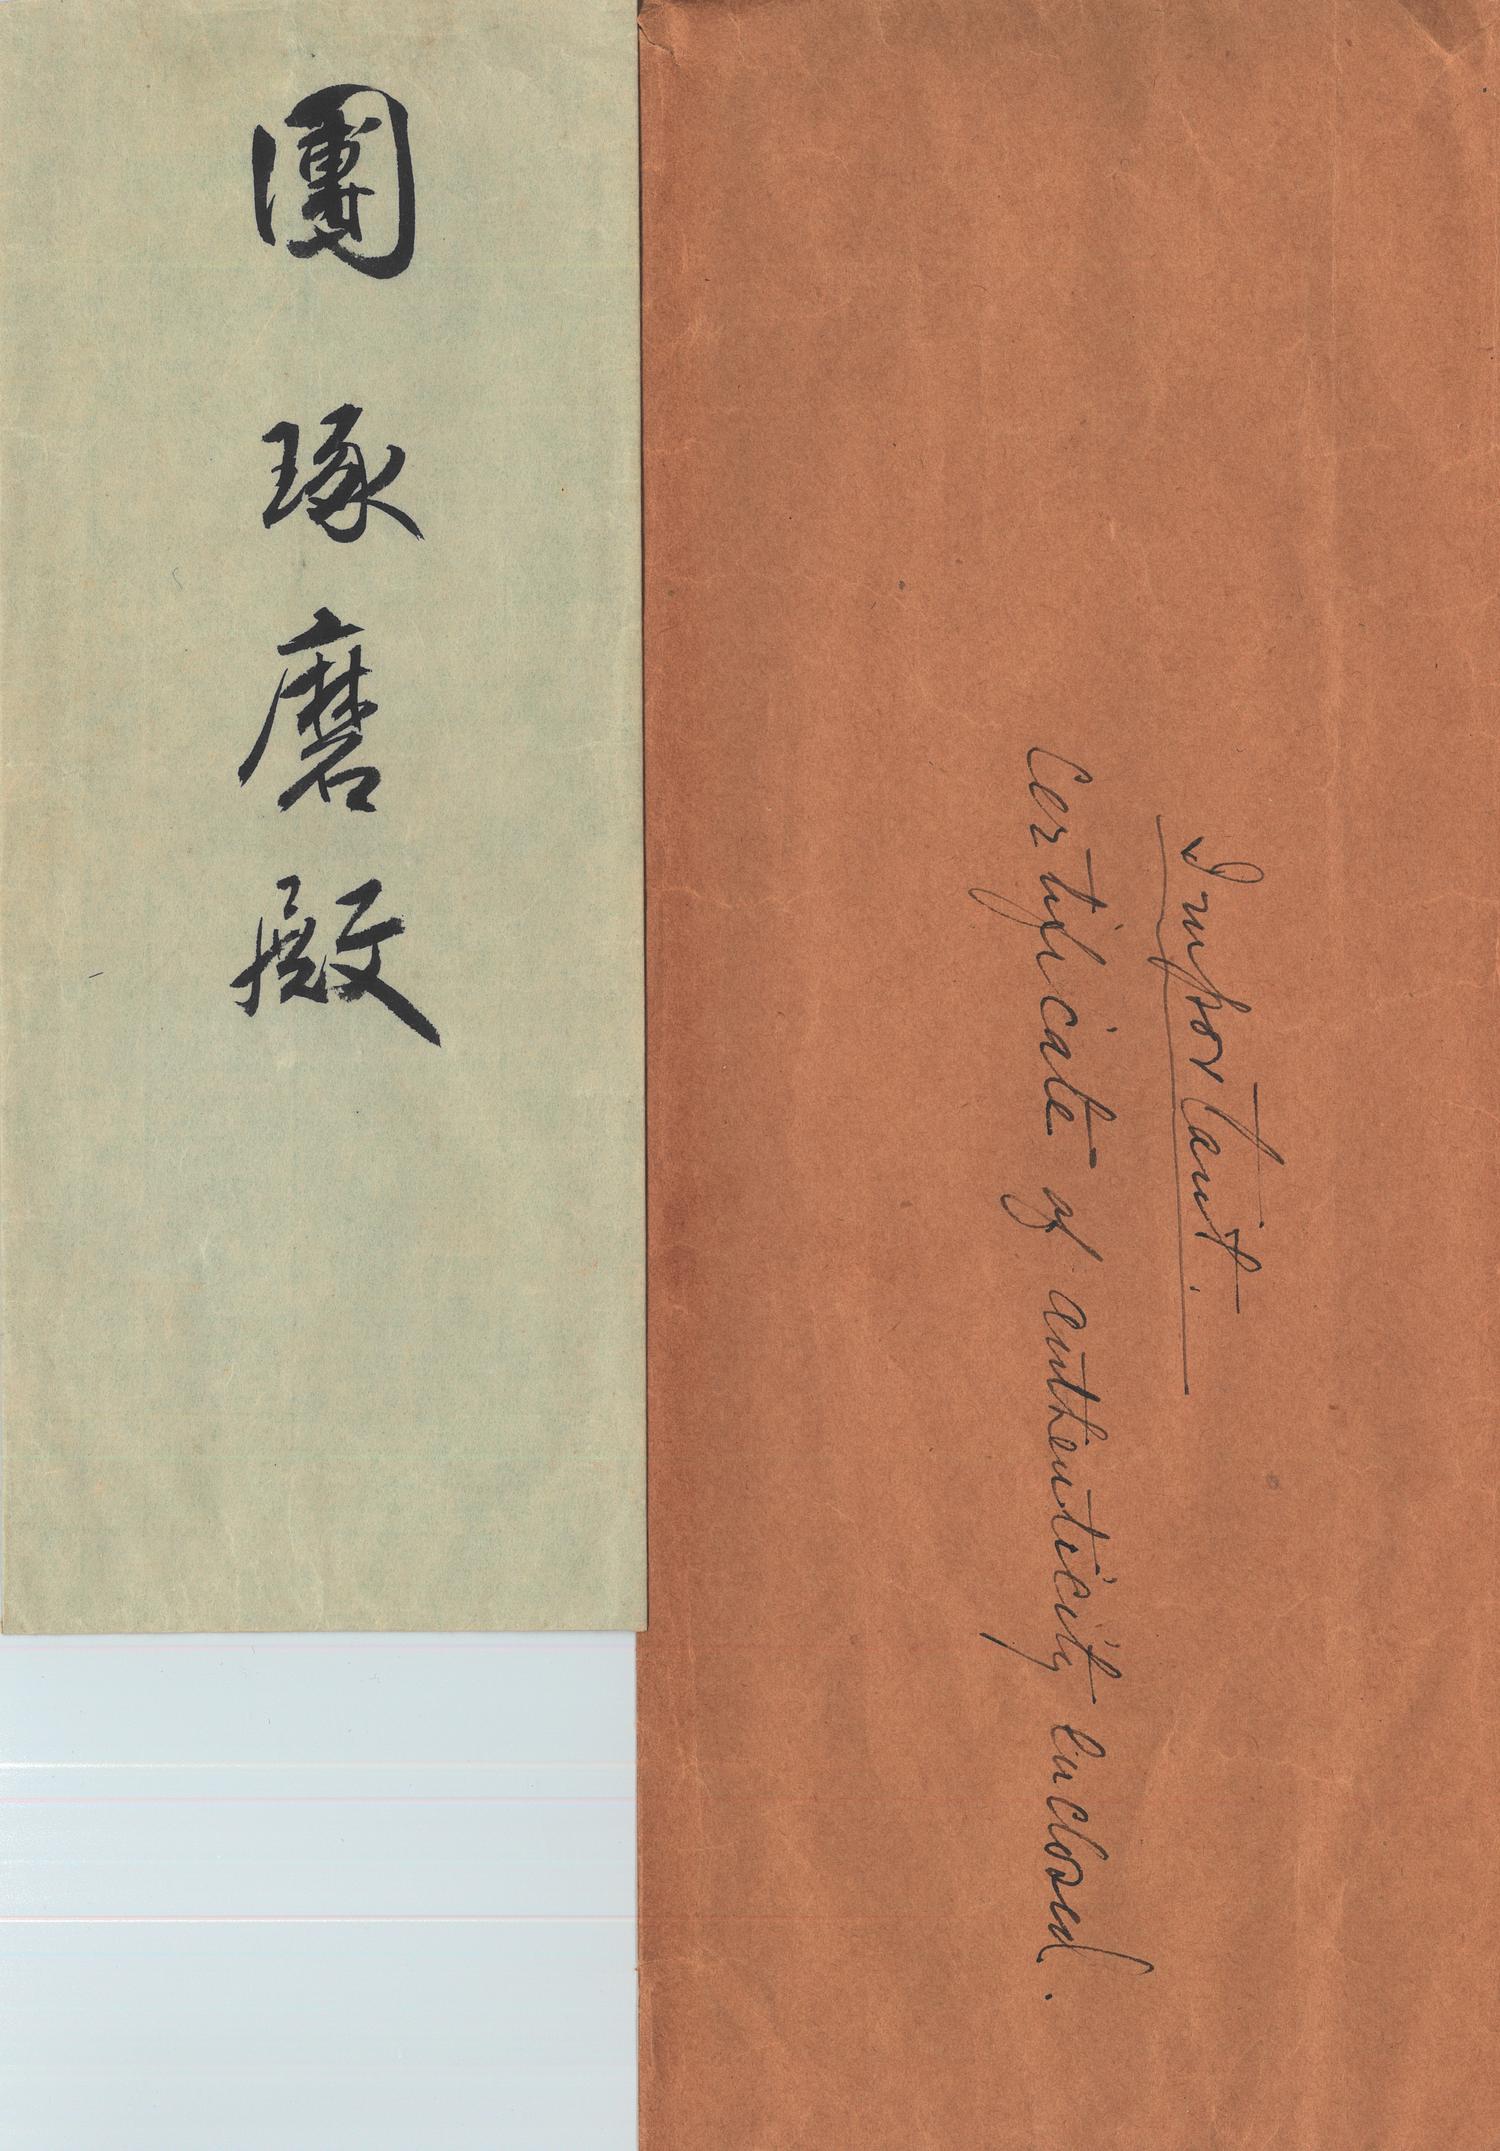 團琢磨殿
Important.
Certificate of authenticity enclosed.